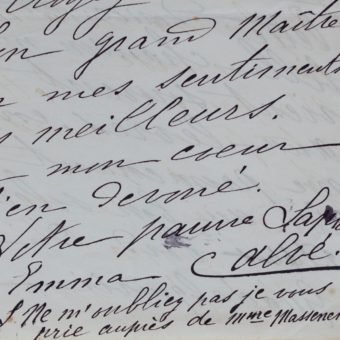 grand Maître
mes sentiments
meilleurs.
mon coeur
dévoué.
Votre pauvre Sapho
Emma Calvé.
Ne m'oubliez pas je vous
prie auprès de Mme Massenet